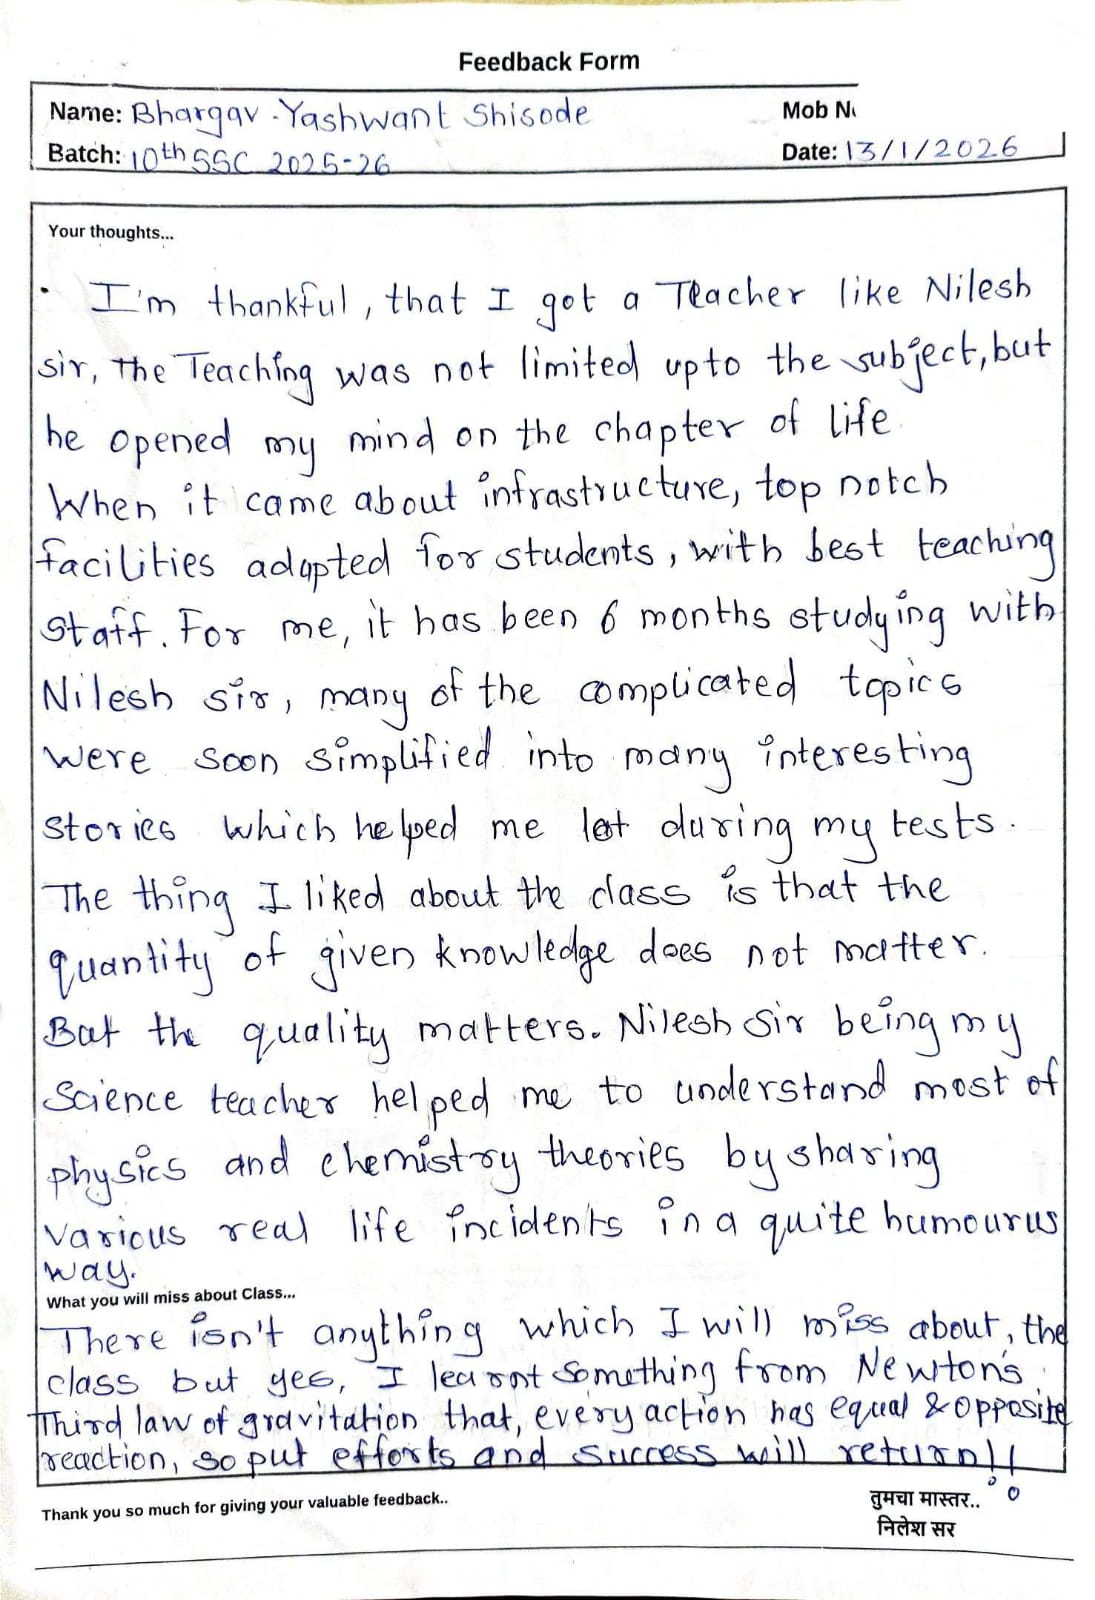 Feedback Form
Name: Bhargav . Yashwant Shisode
Mob No
Batch: 10th SSC 2025-26
Date: 13/1/2026
Your thoughts...
. I'm thankful, that I got a Teacher like Nilesh
sir, The Teaching was not limited upto the subject, but
he opened my mind on the chapter of life
When it came about infrastructure, top notch
facilities adapted for students, with best teaching
staff. For me, it has been 6 months studying with
Nilesh sir, many of the complicated topics
were soon simplified into many interesting
stories which helped me lot during my tests.
The thing I liked about the class is that the
quantity of given knowledge does not matter.
But the quality matters. Nilesh sir being my
Science teacher helped me to understand most of
physics and chemistry theories by sharing
various real life incidents in a quite humourus
way.
What you will miss about Class...
There isn't anything which I will miss about, the
class but yes, I learnt something from Newton's
Third law of gravitation that, every action has equal & opposite
reaction, so put efforts and success will return!!
Thank you so much for giving your valuable feedback..
तुमचा मास्तर..
निलेश सर